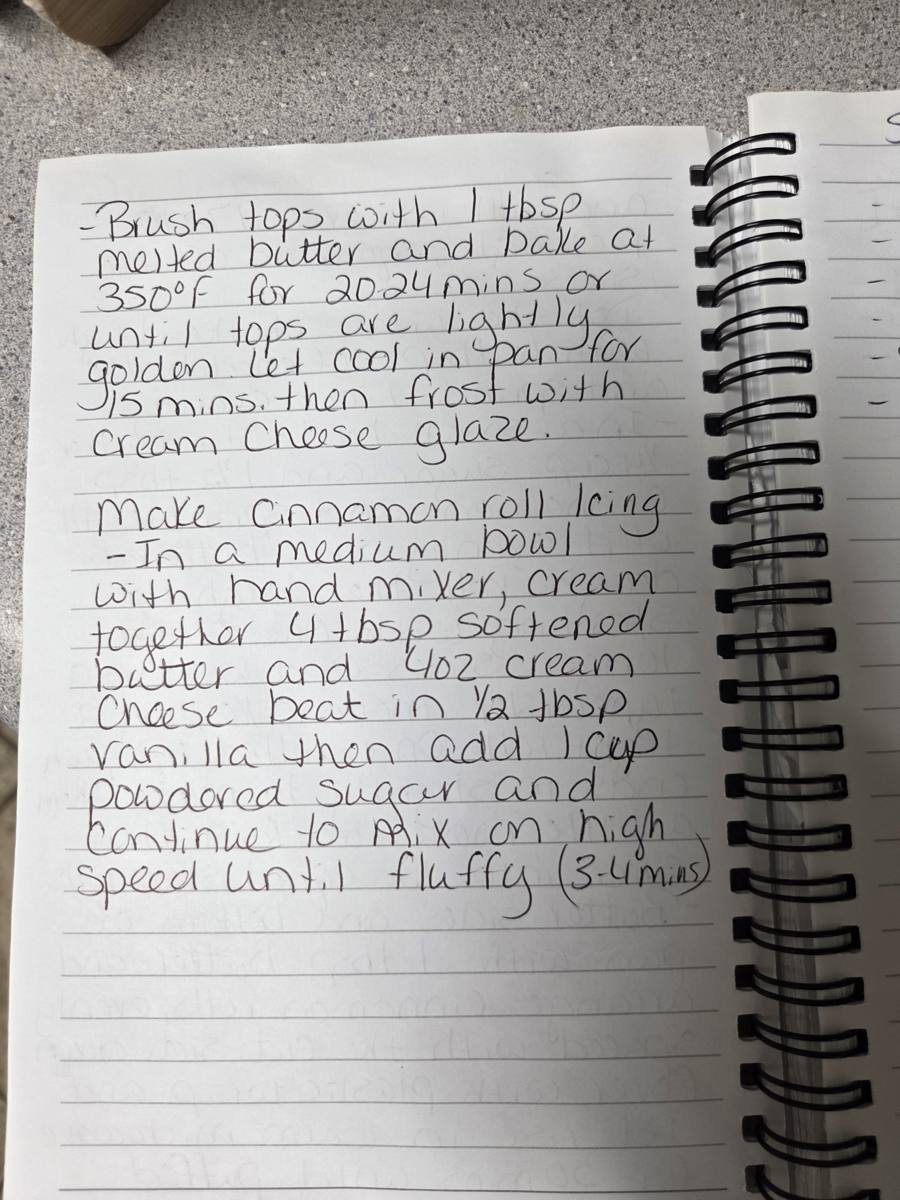 - Brush tops with 1 tbsp
melted butter and bake at
350°F for 20-24 mins or
until tops are lightly
golden. Let cool in pan for
15 mins. then frost with
cream cheese glaze.
Make cinnamon roll Icing
- In a medium bowl
with hand mixer, cream
together 4 tbsp softened
butter and 4oz cream
cheese beat in 1/2 tbsp
vanilla then add 1 cup
powdered sugar and
continue to mix on high
speed until fluffy (3-4 mins)